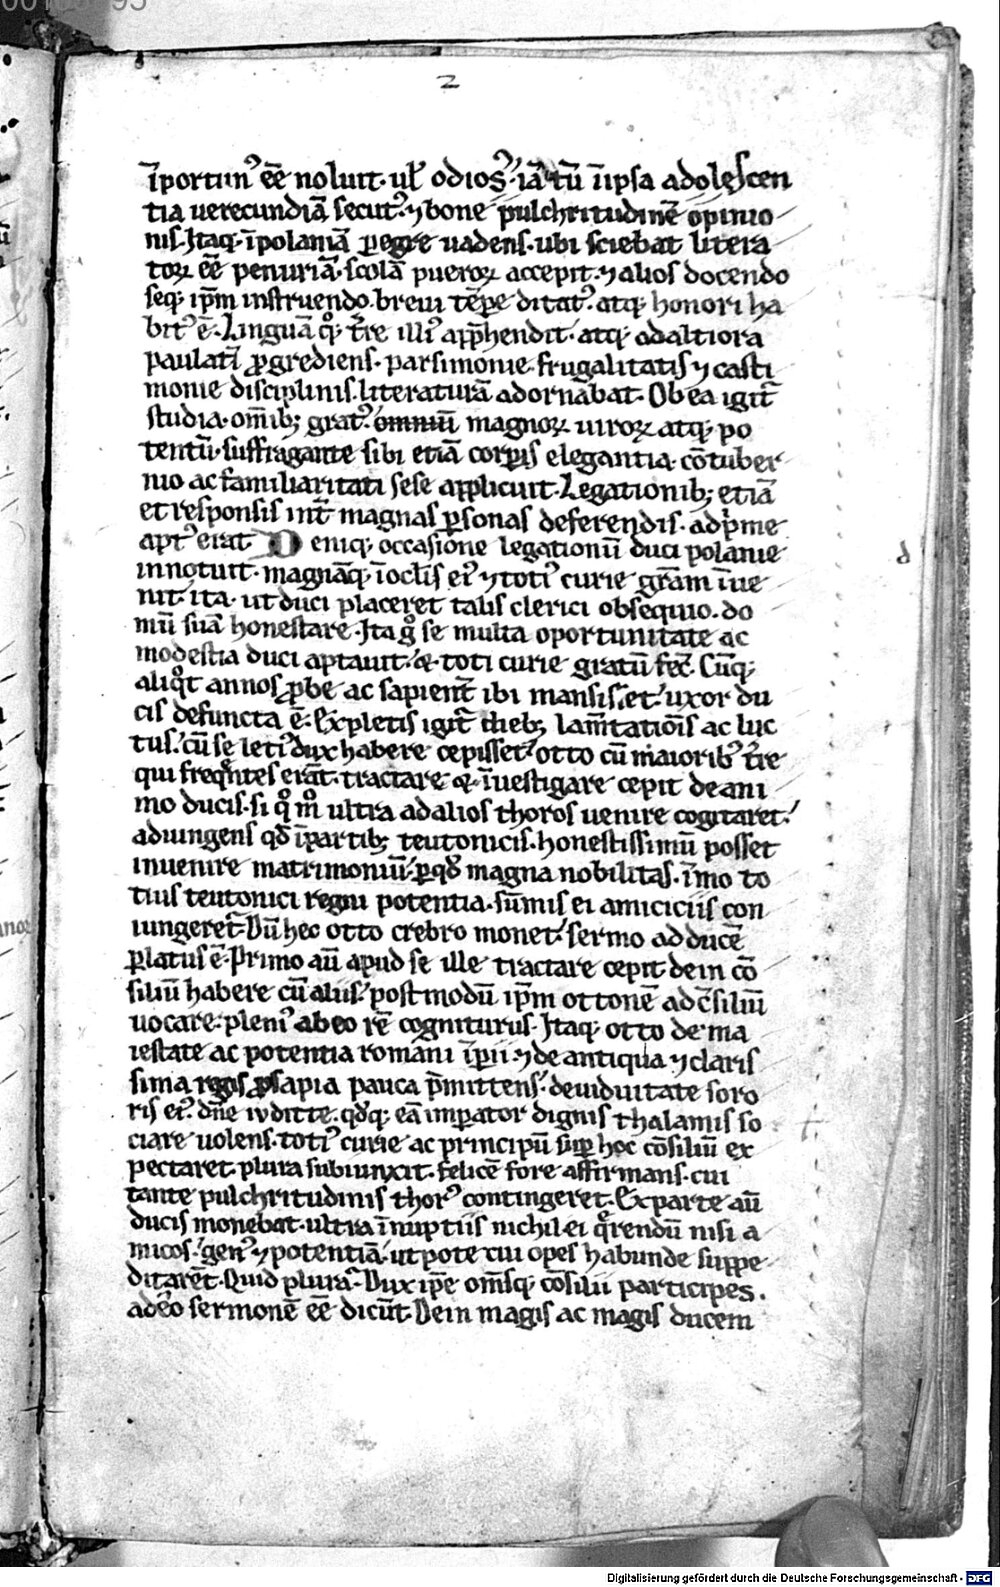 2
īportun᾽ eē noluit. ul᾽ odios᾽. iā tū īipsa adolescen
tia uerecundiā secut᾽. ⁊ bone pulchritudinē opinio
nis. Itaq; īpolaniā ꝑegre uadens. ubi sciebat litera
toꝝ eē penuriā. scolā pueroꝝ accepit. ⁊ alios docendo
seq; ip̄m instruendo. breui tēpe ditat᾽. atq; honori ha
bit᾽ ē. Linguā qͦq; t̄re illi᾽ app̄hendit. atq; adaltiora
paulatī ꝓgrediens. parsimonie. frugalitatis ⁊ casti
monie disciplinis. literaturā adornabat. Ob ea igit᷑
studia. om̄ib; grat᾽. omniū magnoꝝ uiroꝝ atq; po
tentū. suffragante sibi etiā corꝑis elegantia. cōtuber
nio ac familiaritati sese applicuit. Legationib; etiā
et responsis int̄ magnas ꝑsonas deferendis. adp̄me
apt᾽ erat. Deniq; occasione legationū duci polanie
innotuit. magnāq; ī oclis ei᾽ ⁊ toti᾽ curie gr̄am īue
nit. ita. ut duci placeret talis clerici obsequio. do
mū suā honestare. Ita gͦ se multa oportunitate ac
modestia duci aptauit. & toti curie gratū fec̄. Cūq;
aliqͦt annos ꝓbe ac sapient᷑ ibi mansiss; et. uxor du
cis defuncta ē. Expletis igit᷑ dieb; lam̄tationis ac luc
tus. cū se leti᾽ dux habere cepisset. otto cū maiorib᾽ t̄re
qui freqͣntes erāt. tractare & īuestigare cepit de ani
mo ducis. si qͦ mͦ ultra ad alios thoros uenire cogitaret.
adiungens qd̄ ī partib; teutonicis. honestissimū posset
inuenire matrimoniū. ꝑ qd̄ magna nobilitas. īmo to
tius teutonici regni potentia. sūmis ei amiciciis con
iungeret᷑. Dū hec otto crebro monet. sermo ad ducē
ꝑlatus ē. Primo aū apud se ille tractare cepit. dein cō
siliū habere cū aliis. postmodū ip̄m ottonē ad c̄siliū
uocare. pleni᾽ ab eo rē cogniturus. Itaq; otto de ma
iestate ac potentia romani īp̄ii. ⁊ de antiqua ⁊ claris
sima regis ꝓsapia pauca p̄mittens. de uiduitate soro
ris ei᾽ dn̄e iuditte. qd̄q; eā imꝑator dignis thalamis so
ciare uolens. toti᾽ curie ac principū suꝑ hoc cōsiliū ex
pectaret. plura subiunxit. felicē fore affirmans. cui
tante pulchritudinis thor᾽ contingeret. Ex parte aū
ducis monebat. ultra ī nuptiis nichil ei qͣrendū nisi a
micos. gen᾽ ⁊ potentiā. utpote cui opes habunde suppe
ditarēt. Quid plura᾽. Dux ip̄e om̄sq; cōsilii participes.
adeo sermonē eē dicūt. Dein magis ac magis ducem
d
Digitalisierung gefördert durch die Deutsche Forschungsgemeinschaft - DFG